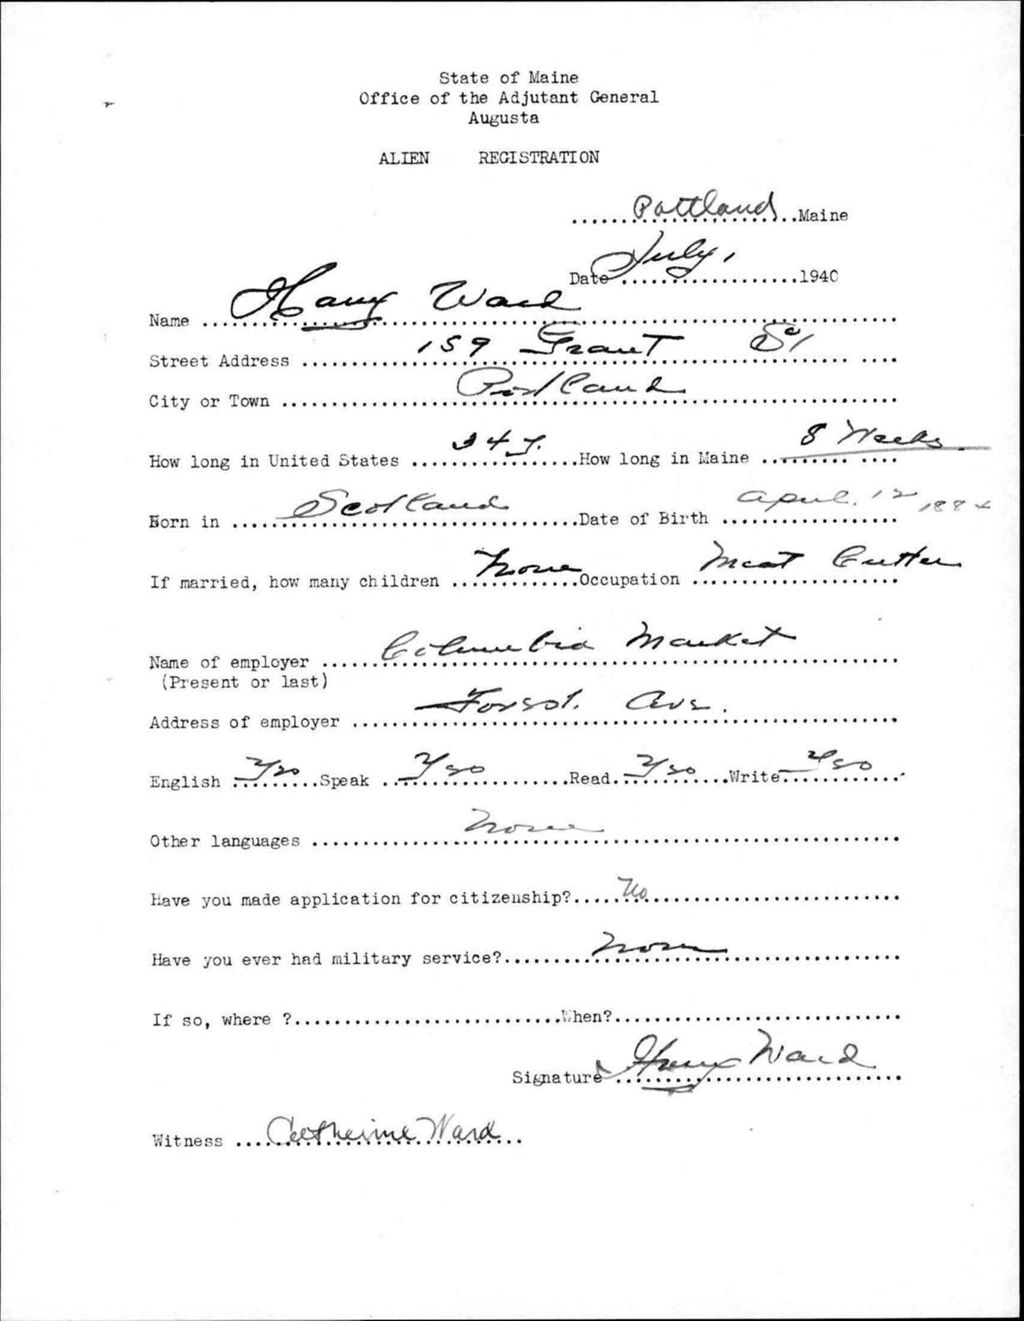 State of Maine
Office of the Adjutant General
Augusta
ALIEN REGISTRATION
......Portland..Maine
Date July, ..................1940
Name ..Harry Ward
Street Address ..159 Grant St
City or Town ..Portland
How long in United States ..34 y. How long in Maine ..8 Weeks
Born in ..Scotland Date of Birth ..April. 12 1884
If married, how many children ..None Occupation ..Meat Cutter
Name of employer ..Columbia Market
(Present or last)
Address of employer ..Forest. Ave.
English Yes Speak Yes Read. Yes Write Yes
Other languages ..None
Have you made application for citizenship?..No
Have you ever had military service?..None
If so, where ?..........................When?............................
Signature Harry Ward
Witness ..Catherine Ward